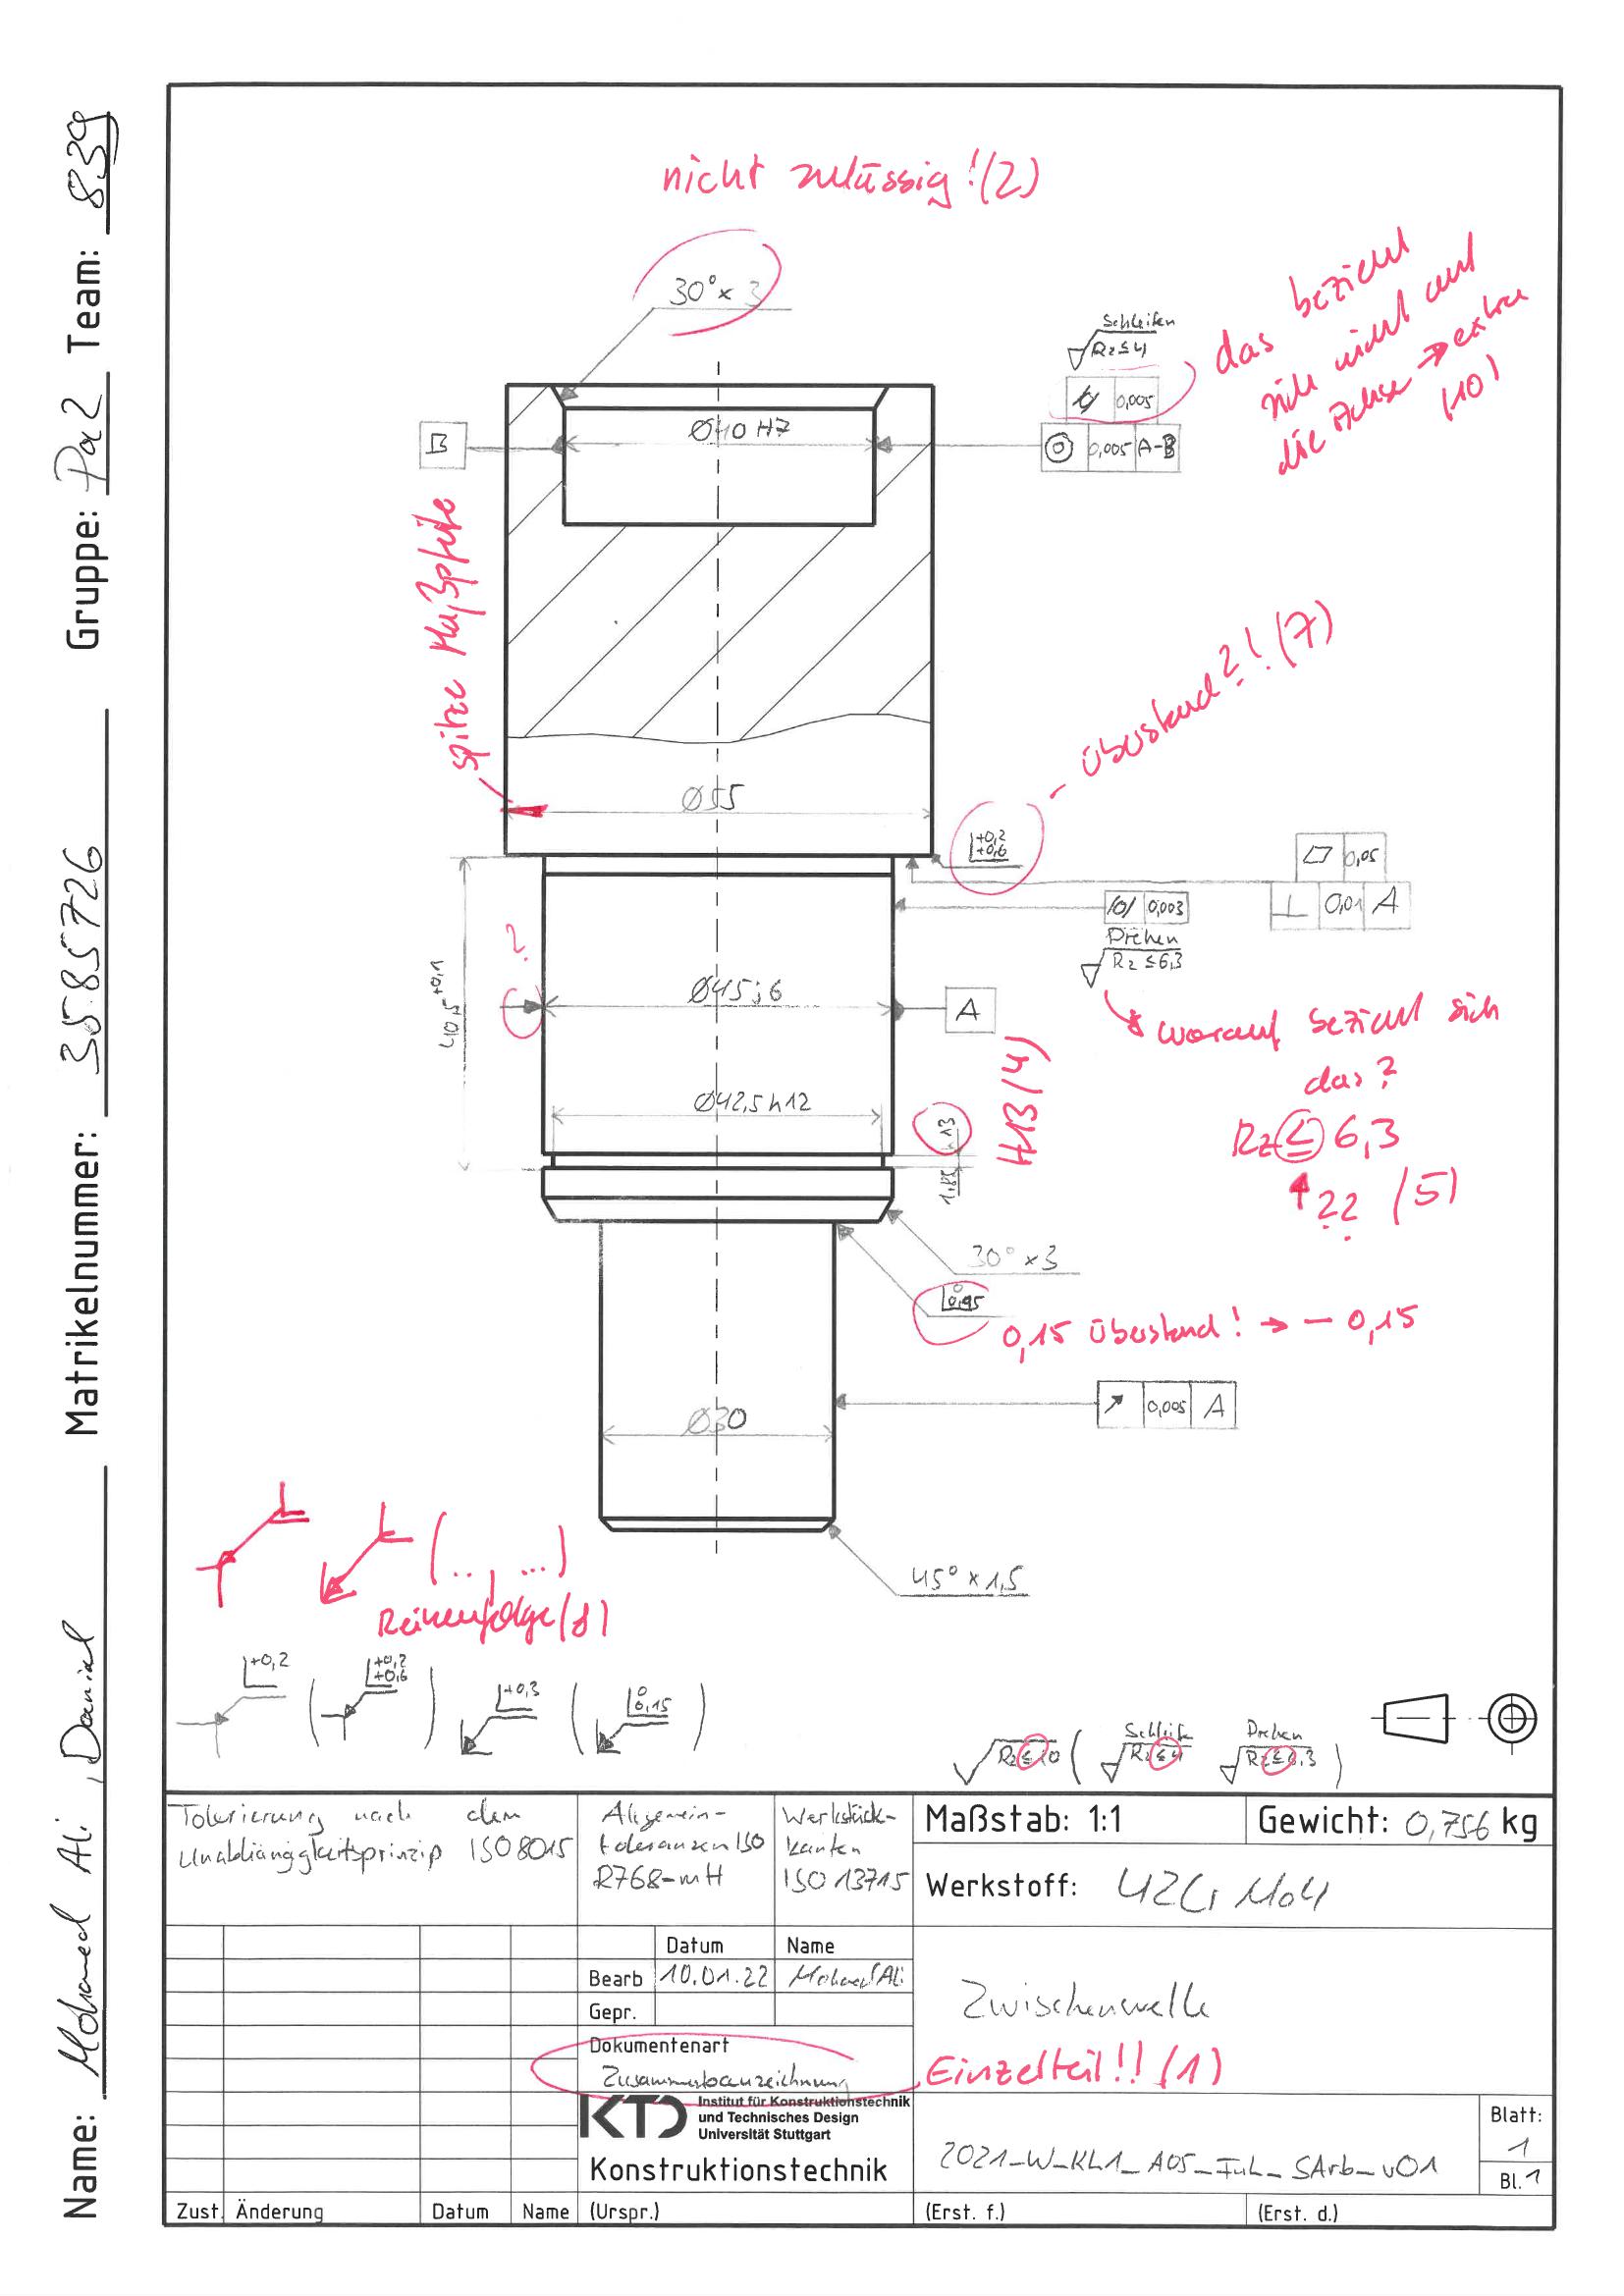 Name: Mohamed Ali, Danial Matrikelnummer: 3585726 Gruppe: Pa2 Team: 839
nicht zulässig! (2)
30° x 3
Schleifen
Rz≤4
0,005
0,005 A-B
das bezieht
sich nicht auf
die Achse → extra
(10)
B
Ø40 H7
spitze Maßpfeile
Überstand?! (7)
Ø55
+0,2
+0,6
0,05
0,01 A
0,003
Drehen
Rz ≤6,3
?
40,5 +0,1
Ø45j6
A
worauf bezieht sich
das?
Rz ≤ 6,3
?? (5)
Ø42,5 h12
h13
H13 (4)
1,85
30° x 3
0
0,15
0,15 Überstand! → - 0,15
0,005 A
Ø30
45° x 1,5
(.. , ...)
Reihenfolge (8)
+0,2 ( +0,2 +0,6 ) +0,3 ( 0 0,15 )
Rz ≤ 10 ( Schleifen Rz ≤ 4 Drehen Rz ≤ 6,3 )
Tolerierung nach dem
Unabhängigkeitsprinzip ISO8015
Allgemein-
toleranzen ISO
2768-mH
Werkstück-
kanten
ISO 13715
Maßstab: 1:1
Gewicht: 0,756 kg
Werkstoff: 42CrMo4
Datum Name
Bearb 10.01.22 Mohamed Ali
Gepr.
Dokumentenart
Zusammenbauzeichnung
Zwischenwelle
Einzelteil!! (1)
KTD
Institut für Konstruktionstechnik
und Technisches Design
Universität Stuttgart
Konstruktionstechnik
2021_W_KL1_A05_Inh_SArb_v01
Blatt:
1
Bl. 1
Zust. Änderung Datum Name (Urspr.) (Erst. f.) (Erst. d.)